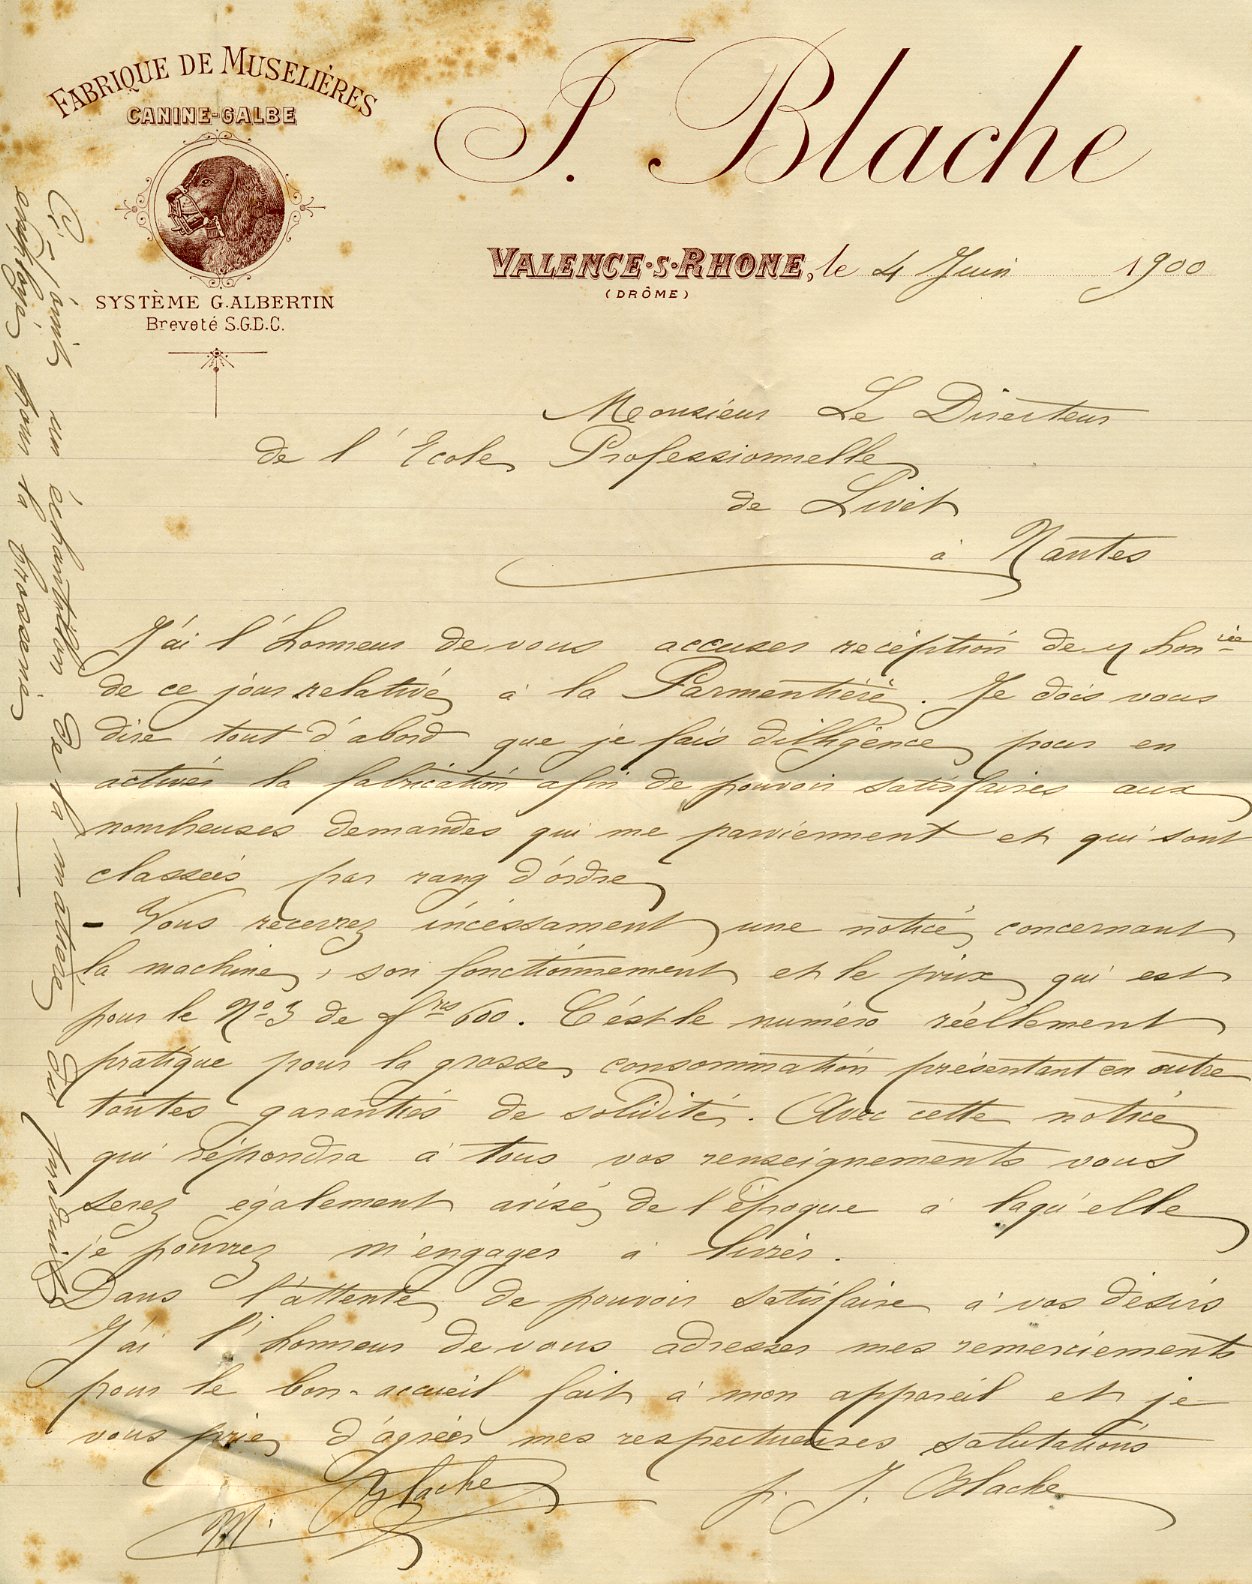 FABRIQUE DE MUSELIÈRES
CANINE-GALBE
SYSTÈME G. ALBERTIN
Breveté S.G.D.G.
J. Blache
VALENCE-S-RHONE, le 4 Juin 1900
(DRÔME)
Monsieur Le Directeur
de l'Ecole Professionnelle
de Livet
à Nantes
J'ai l'honneur de vous accuser reception de v honrée
de ce jour relative à la Parmentière. Je dois vous
dire tout d'abord que je fais dilligence pour en
activer la fabrication afin de pouvoir satisfaires aux
nombreuses demandes qui me parviennent et qui sont
classées par rang d'ordre
- Vous recevrez incéssament une notice concernant
la machine, son fonctionnement et le prix qui est
pour le No 3 de frs 600. C'est le numéro réellement
pratique pour la grosse consommation présentant en outre
toutes garanties de solidité. Avec cette notice
qui répondra à tous vos renseignements vous
serez également avisé de l'époque à laqu'elle
je pourrez m'engager à livrer.
Dans l'attente de pouvoir satisfaire à vos désirs
J'ai l'honneur de vous adresser mes remerciements
pour le bon-accueil fait à mon appareil et je
vous prie d'agréer mes respectueuses salutations
p. J. Blache
M. Blache
P.S. un échantillon de la matière du produit
employé pour la brosserie